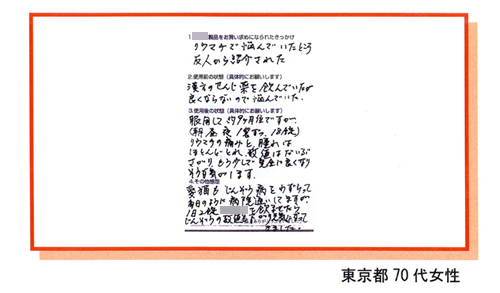 1 製品をお買い求めになられたきっかけ
リウマチで悩んでいたところ
友人から紹介された
2.使用前の状態（具体的にお願いします）
漢方のせんじ薬を飲んでいたが
良くならないので悩んでいた.
3.使用後の状態（具体的にお願いします）
服用して約9ヶ月後ですが、
リウマチの痛みと、腫れは
ほとんどとれ、数値はだいぶ
さがり、もう少しで完全に良くなり
そうな気がします。
4.その他感想
愛猫もじんぞう病をわずらって
毎日のように病院通いしてますが、
1日2錠 を飲ませたら
じんぞうの数値も
きました。
東京都70代女性